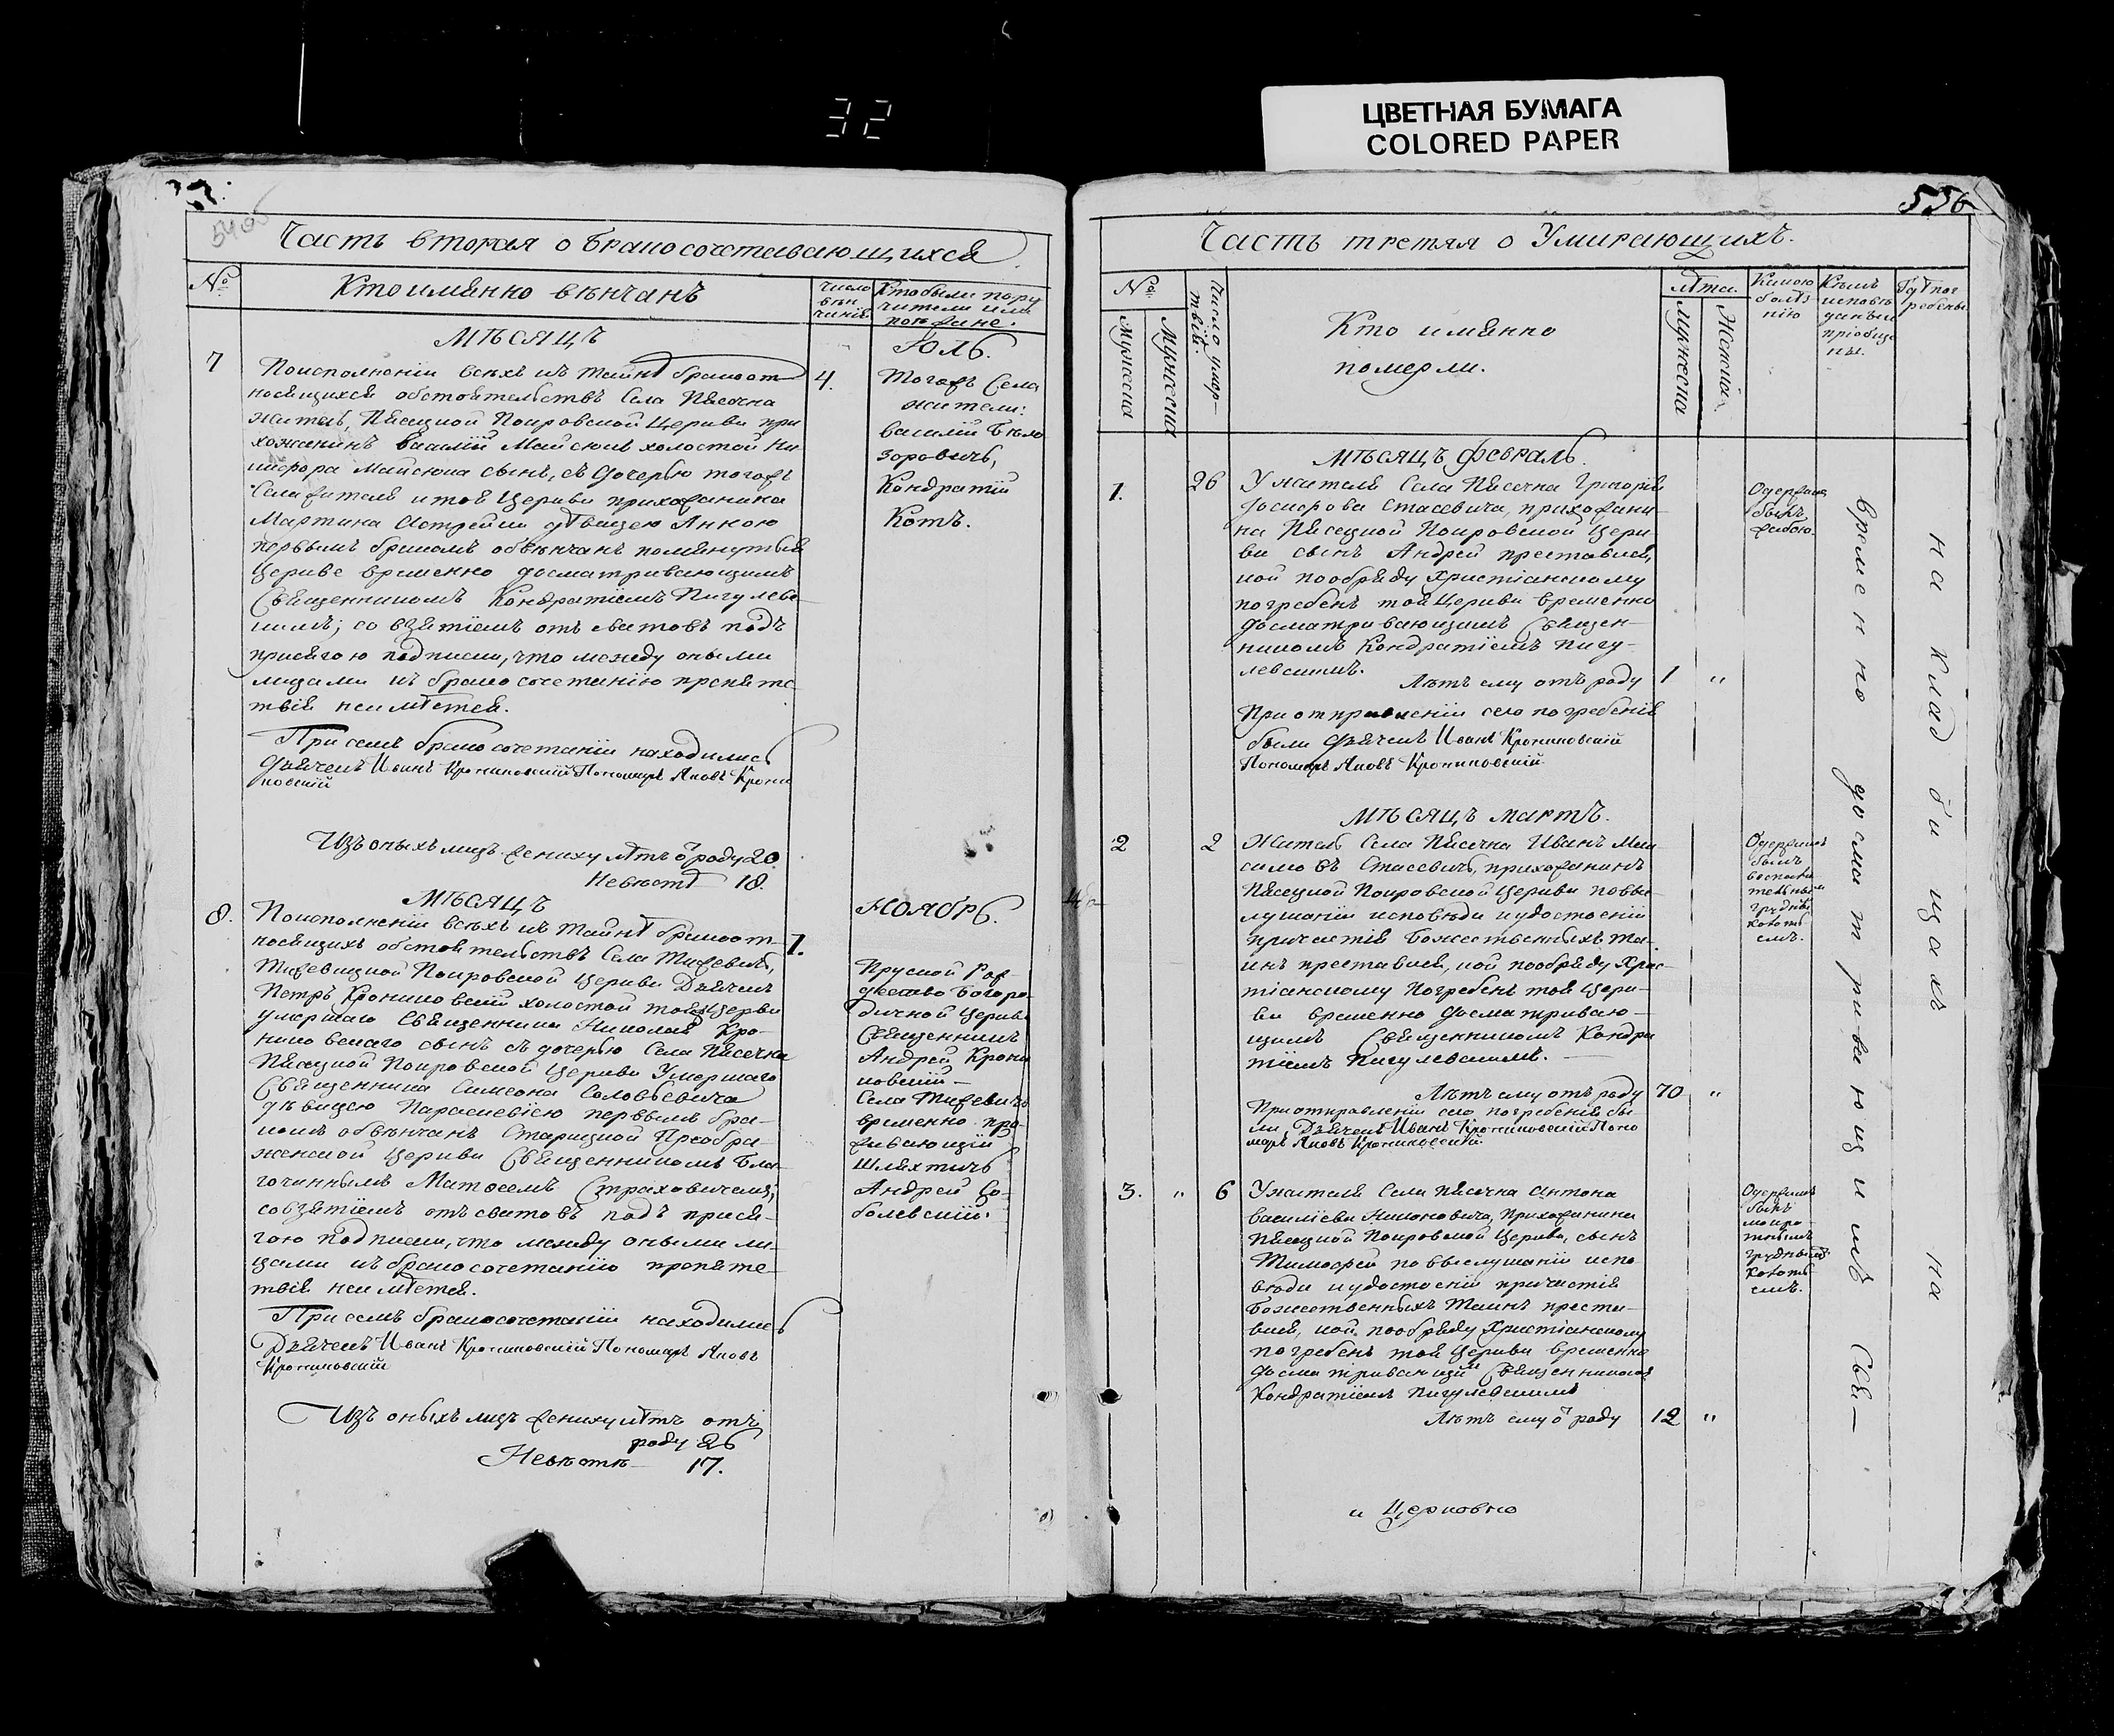 32
ЦВЕТНАЯ БУМАГА
COLORED PAPER
Часть вторая о бракосочетавающихся
№
Кто имянно вѣнчанъ
Число вѣн чанія
Кто были пору
чители или
поѣзжане.
Мѣсяцъ
Юль.
7
Поисполненіи всѣхъ къ тайнѣ брака от
носящихся обстоятельствъ Села Песочна
житель, Песецкой Покровской Церкви при
хожанинъ Василій Майсюкъ холостой Ни
кифора Майсюка сынъ, съ дочерью тогожъ
Села жителя и той Церкви прихожанина
Мартина дѣвицею Анною
первымъ бракомъ обвѣнчанъ помянутыя
Церкве временно досматривающимъ
Священникомъ Кондратіемъ Пигулевс
кимъ; со взятіемъ отъ сватовъ подъ
присягою подписки, что между оными
лицами къ бракосочетанію препятс
твія неимѣется.
При семъ бракосочетаніи находились
Дьячекъ Иванъ Крониковскій Пономарь Яковъ Крони
ковскій
4.
Тогожъ Села
жители:
Василій Бѣло
зоровичь,
Кондратій
Котъ.
Изъ оныхъ лицъ жениху лѣтъ от роду 20.
Невѣстѣ 18.
Мѣсяцъ
Ноябрь.
8.
Поисполненіи всѣхъ къ тайнѣ брака от
носящихъ обстоятельствъ Села Тижевичь,
Тижевицкой Покровской Церкви Дьячекъ
Петръ Крониковскій холостой тояжъ Церкви
умершаго Священника Николая Кро-
никовскаго сынъ съ дочерью Села Песочна
Песецкой Покровской Церкви Умершаго
Священника Симеона Соловьевича
дѣвицею Параскевіею первымъ бра-
комъ обвѣнчанъ Старицкой Преобра-
женской Церкви Священникомъ Бла-
гочиннымъ Матѳеемъ Страховичемъ,
совзятіемъ отъ сватовъ подъ прися-
гою подписки, что между оными ли-
цами къ бракосочетанію препятс
твія неимѣется.
При семъ бракосочетаніи находились
Дьячекъ Иванъ Крониковскій Пономарь Яковъ
Крониковскій
1.
Пруской Рож
дество Богоро-
дичной Церкви
Священникъ
Андрей Крони
ковскій
Села Тижевичь
временно про
живающій
Шляхтичь
Андрей Со-
болевскій.
Изъ оныхъ лицъ жениху лѣтъ отъ
роду 26
Невѣстѣ 17.
556
Часть третяя о Умирающихъ.
№
Мужеска
Число умер-
твія.
Кто имянно
померли.
Лѣта.
Мужеска
Женска
Какою
болѣз
нію
Кѣмъ
исповѣ
даны и
пріобще
ны.
Гдѣ пог
ребены
Мѣсяцъ Февраль.
1.
26
У жителя Села Песочна Григорія
Стасевича, прихожани-
на Песецкой Покровской Церк
ви сынъ Андрей преставися,
кой пообряду Христіанскому
погребенъ той Церкви временно
досматривающимъ Священ-
никомъ Кондратіемъ Пигу-
левскимъ.
Лѣтъ ему отъ роду 1 "
При отправленіи сего погребенія
были Дьячекъ Иванъ Крониковскій
Пономарь Яковъ Крониковскій
Одержимъ
былъ
Мѣсяцъ Мартъ.
2
2
Житель Села Песочна Иванъ Мак
симовъ Стасевичь, прихожанинъ
Песецкой Покровской Церкви по вы
слушаніи исповѣди и удостоеніи
причастія Божественныхъ та-
инъ преставися, кой пообряду Хрис-
тіанскому погребенъ той Церк-
ви временно досматриваю-
щимъ Священникомъ Кондра
тіемъ Пигулевскимъ.
Лѣтъ ему отъ роду 70 "
При отправленіи сего погребенія бы
ли, Дьячекъ Иванъ Крониковскій Поно
марь Яковъ Крониковскій
Одержимъ
былъ
воспали
тельным
груднымъ
3.
"
6
У жителя Села Песочна Антона
Василіева Никоновича, Прихожанина
Песецкой Покровской Церкви, сынъ
Тимоѳей по выслушаніи испо
вѣди и удостоеніи причастія
Божественныхъ Таинъ преста-
вися, кой пообряду Христіанскому
погребенъ той Церкви временно
досматривающимъ Священникомъ
Кондратіемъ Пигулевскимъ
Лѣтъ ему от роду 12 "
Одержимъ
былъ
мокро
тнымъ
груднымъ
и Церковно
временно досматривающимъ Свя-
на кладбищахъ на